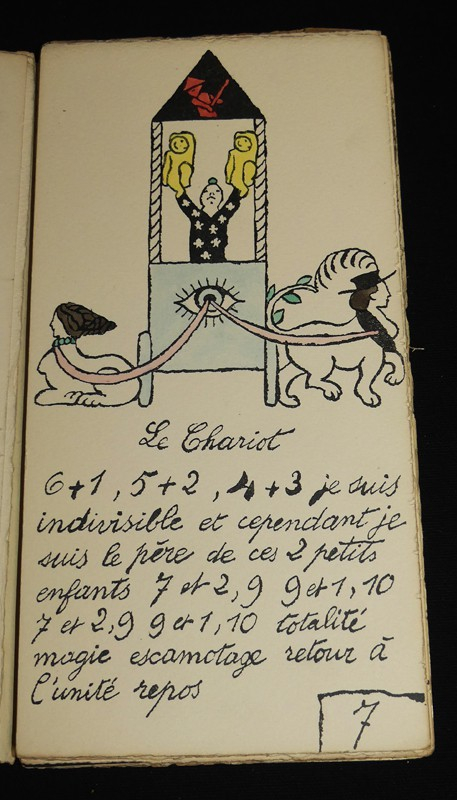 Le Chariot
6+1, 5+2, 4+3 je suis
indivisible et cependant je
suis le père de ces 2 petits
enfants 7 et 2, 9 9 et 1, 10
7 et 2, 9 9 et 1, 10 totalité
magie escamotage retour à
l'unité repos
7